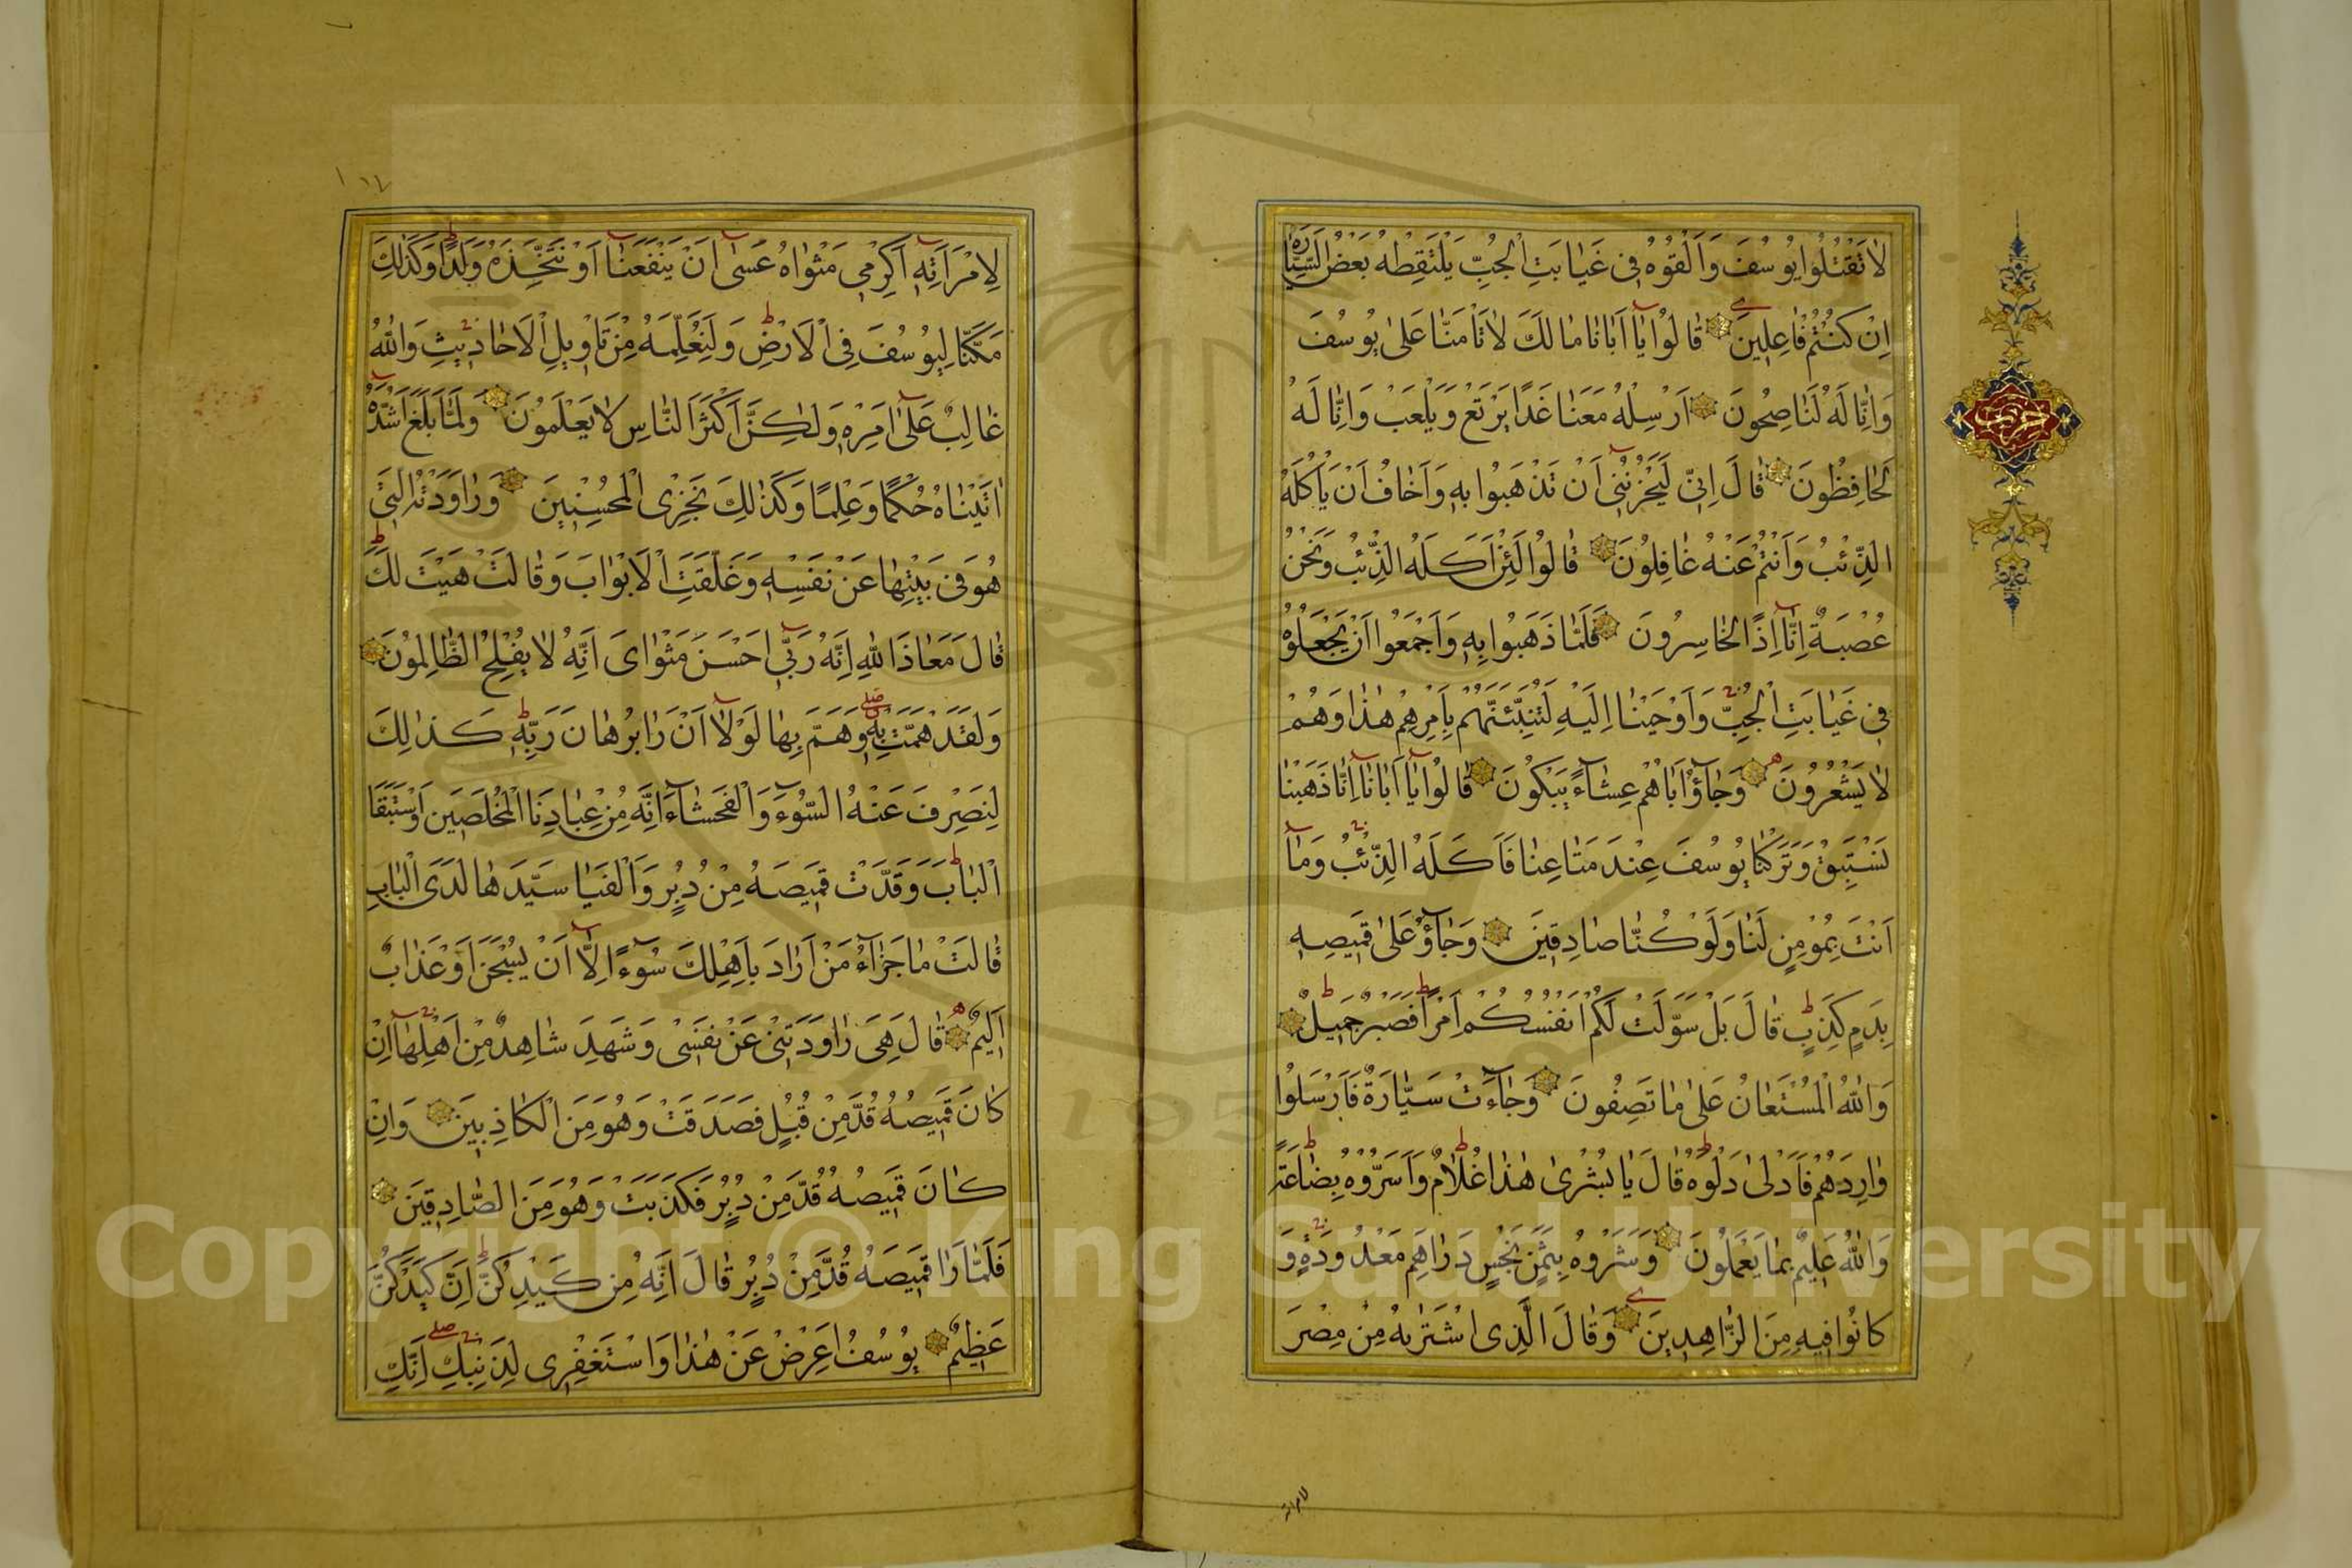 لَا تَقْتُلُوا يُوسُفَ وَاَلْقُوهُ فِى غَيَابَتِ الْجُبِّ يَلْتَقِطْهُ بَعْضُ السَّيَّارَةِ
اِنْ كُنْتُمْ فَاعِلِينَ قَالُوا يَا اَبَانَا مَا لَكَ لَا تَاْمَنَّا عَلٰى يُوسُفَ
وَاِنَّا لَهُ لَنَاصِحُونَ اَرْسِلْهُ مَعَنَا غَدًا يَرْتَعْ وَيَلْعَبْ وَاِنَّا لَهُ
لَحَافِظُونَ قَالَ اِنِّى لَيَحْزُنُنِى اَنْ تَذْهَبُوا بِهِ وَاَخَافُ اَنْ يَاْكُلَهُ
الذِّئْبُ وَاَنْتُمْ عَنْهُ غَافِلُونَ قَالُوا لَئِنْ اَكَلَهُ الذِّئْبُ وَنَحْنُ
عُصْبَةٌ اِنَّا اِذًا لَخَاسِرُونَ فَلَمَّا ذَهَبُوا بِهِ وَاَجْمَعُوا اَنْ يَجْعَلُوهُ
فِى غَيَابَتِ الْجُبِّ وَاَوْحَيْنَا اِلَيْهِ لَتُنَبِّئَنَّهُمْ بِاَمْرِهِمْ هٰذَا وَهُمْ
لَا يَشْعُرُونَ وَجَآؤُا اَبَاهُمْ عِشَآءً يَبْكُونَ قَالُوا يَا اَبَانَا اِنَّا ذَهَبْنَا
نَسْتَبِقُ وَتَرَكْنَا يُوسُفَ عِنْدَ مَتَاعِنَا فَاَكَلَهُ الذِّئْبُ وَمَا
اَنْتَ بِمُؤْمِنٍ لَنَا وَلَوْ كُنَّا صَادِقِينَ وَجَآؤُ عَلٰى قَمِيصِهِ
بِدَمٍ كَذِبٍ قَالَ بَلْ سَوَّلَتْ لَكُمْ اَنْفُسُكُمْ اَمْرًا فَصَبْرٌ جَمِيلٌ
وَاللّٰهُ الْمُسْتَعَانُ عَلٰى مَا تَصِفُونَ وَجَآءَتْ سَيَّارَةٌ فَاَرْسَلُوا
وَارِدَهُمْ فَاَدْلٰى دَلْوَهُ قَالَ يَا بُشْرٰى هٰذَا غُلَامٌ وَاَسَرُّوهُ بِضَاعَةً
وَاللّٰهُ عَلِيمٌ بِمَا يَعْمَلُونَ وَشَرَوْهُ بِثَمَنٍ بَخْسٍ دَرَاهِمَ مَعْدُودَةٍ وَ
كَانُوا فِيهِ مِنَ الزَّاهِدِينَ وَقَالَ الَّذِى اشْتَرٰيهُ مِنْ مِصْرَ
لامراته
حزب
١١٤
لِامْرَاَتِهِ اَكْرِمِى مَثْوٰاهُ عَسٰى اَنْ يَنْفَعَنَا اَوْ نَتَّخِذَهُ وَلَدًا وَكَذٰلِكَ
مَكَّنَّا لِيُوسُفَ فِى الْاَرْضِ وَلِنُعَلِّمَهُ مِنْ تَاْوِيلِ الْاَحَادِيثِ وَاللّٰهُ
غَالِبٌ عَلٰى اَمْرِهِ وَلٰكِنَّ اَكْثَرَ النَّاسِ لَا يَعْلَمُونَ وَلَمَّا بَلَغَ اَشُدَّهُ
اٰتَيْنَاهُ حُكْمًا وَعِلْمًا وَكَذٰلِكَ نَجْزِى الْمُحْسِنِينَ وَرَاوَدَتْهُ الَّتِى
هُوَ فِى بَيْتِهَا عَنْ نَفْسِهِ وَغَلَّقَتِ الْاَبْوَابَ وَقَالَتْ هَيْتَ لَكَ
قَالَ مَعَاذَ اللّٰهِ اِنَّهُ رَبِّى اَحْسَنَ مَثْوَاىَ اِنَّهُ لَا يُفْلِحُ الظَّالِمُونَ
وَلَقَدْ هَمَّتْ بِهِ وَهَمَّ بِهَا لَوْلَا اَنْ رَاٰ بُرْهَانَ رَبِّهِ كَذٰلِكَ
لِنَصْرِفَ عَنْهُ السُّوٓءَ وَالْفَحْشَآءَ اِنَّهُ مِنْ عِبَادِنَا الْمُخْلَصِينَ وَاسْتَبَقَا
الْبَابَ وَقَدَّتْ قَمِيصَهُ مِنْ دُبُرٍ وَاَلْفَيَا سَيِّدَهَا لَدَى الْبَابِ
قَالَتْ مَا جَزَآءُ مَنْ اَرَادَ بِاَهْلِكَ سُوٓءًا اِلَّا اَنْ يُسْجَنَ اَوْ عَذَابٌ
اَلِيمٌ قَالَ هِىَ رَاوَدَتْنِى عَنْ نَفْسِى وَشَهِدَ شَاهِدٌ مِنْ اَهْلِهَا اِنْ
كَانَ قَمِيصُهُ قُدَّ مِنْ قُبُلٍ فَصَدَقَتْ وَهُوَ مِنَ الْكَاذِبِينَ وَاِنْ
كَانَ قَمِيصُهُ قُدَّ مِنْ دُبُرٍ فَكَذَبَتْ وَهُوَ مِنَ الصَّادِقِينَ
فَلَمَّا رَاٰ قَمِيصَهُ قُدَّ مِنْ دُبُرٍ قَالَ اِنَّهُ مِنْ كَيْدِكُنَّ اِنَّ كَيْدَكُنَّ
عَظِيمٌ يُوسُفُ اَعْرِضْ عَنْ هٰذَا وَاسْتَغْفِرِى لِذَنْبِكِ اِنَّكِ
Copyright © King Saud University
1957